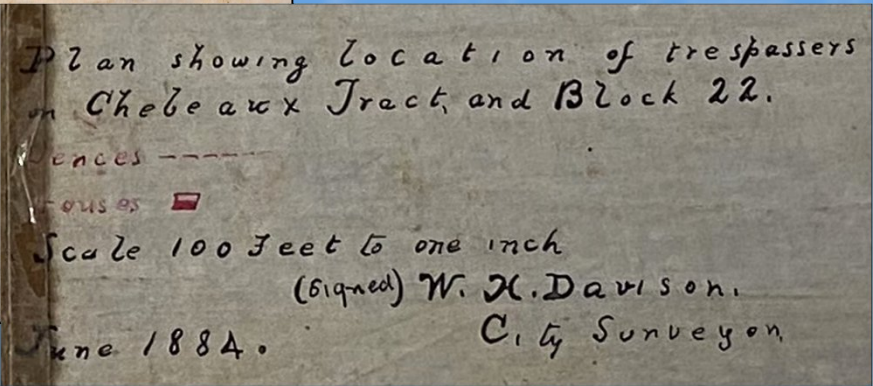 Plan showing location of trespassers
on Chebeaux Tract, and Block 22.
Fences ------
Houses
Scale 100 Feet to one inch
(Signed) W. H. Davison.
City Surveyor,
June 1884.